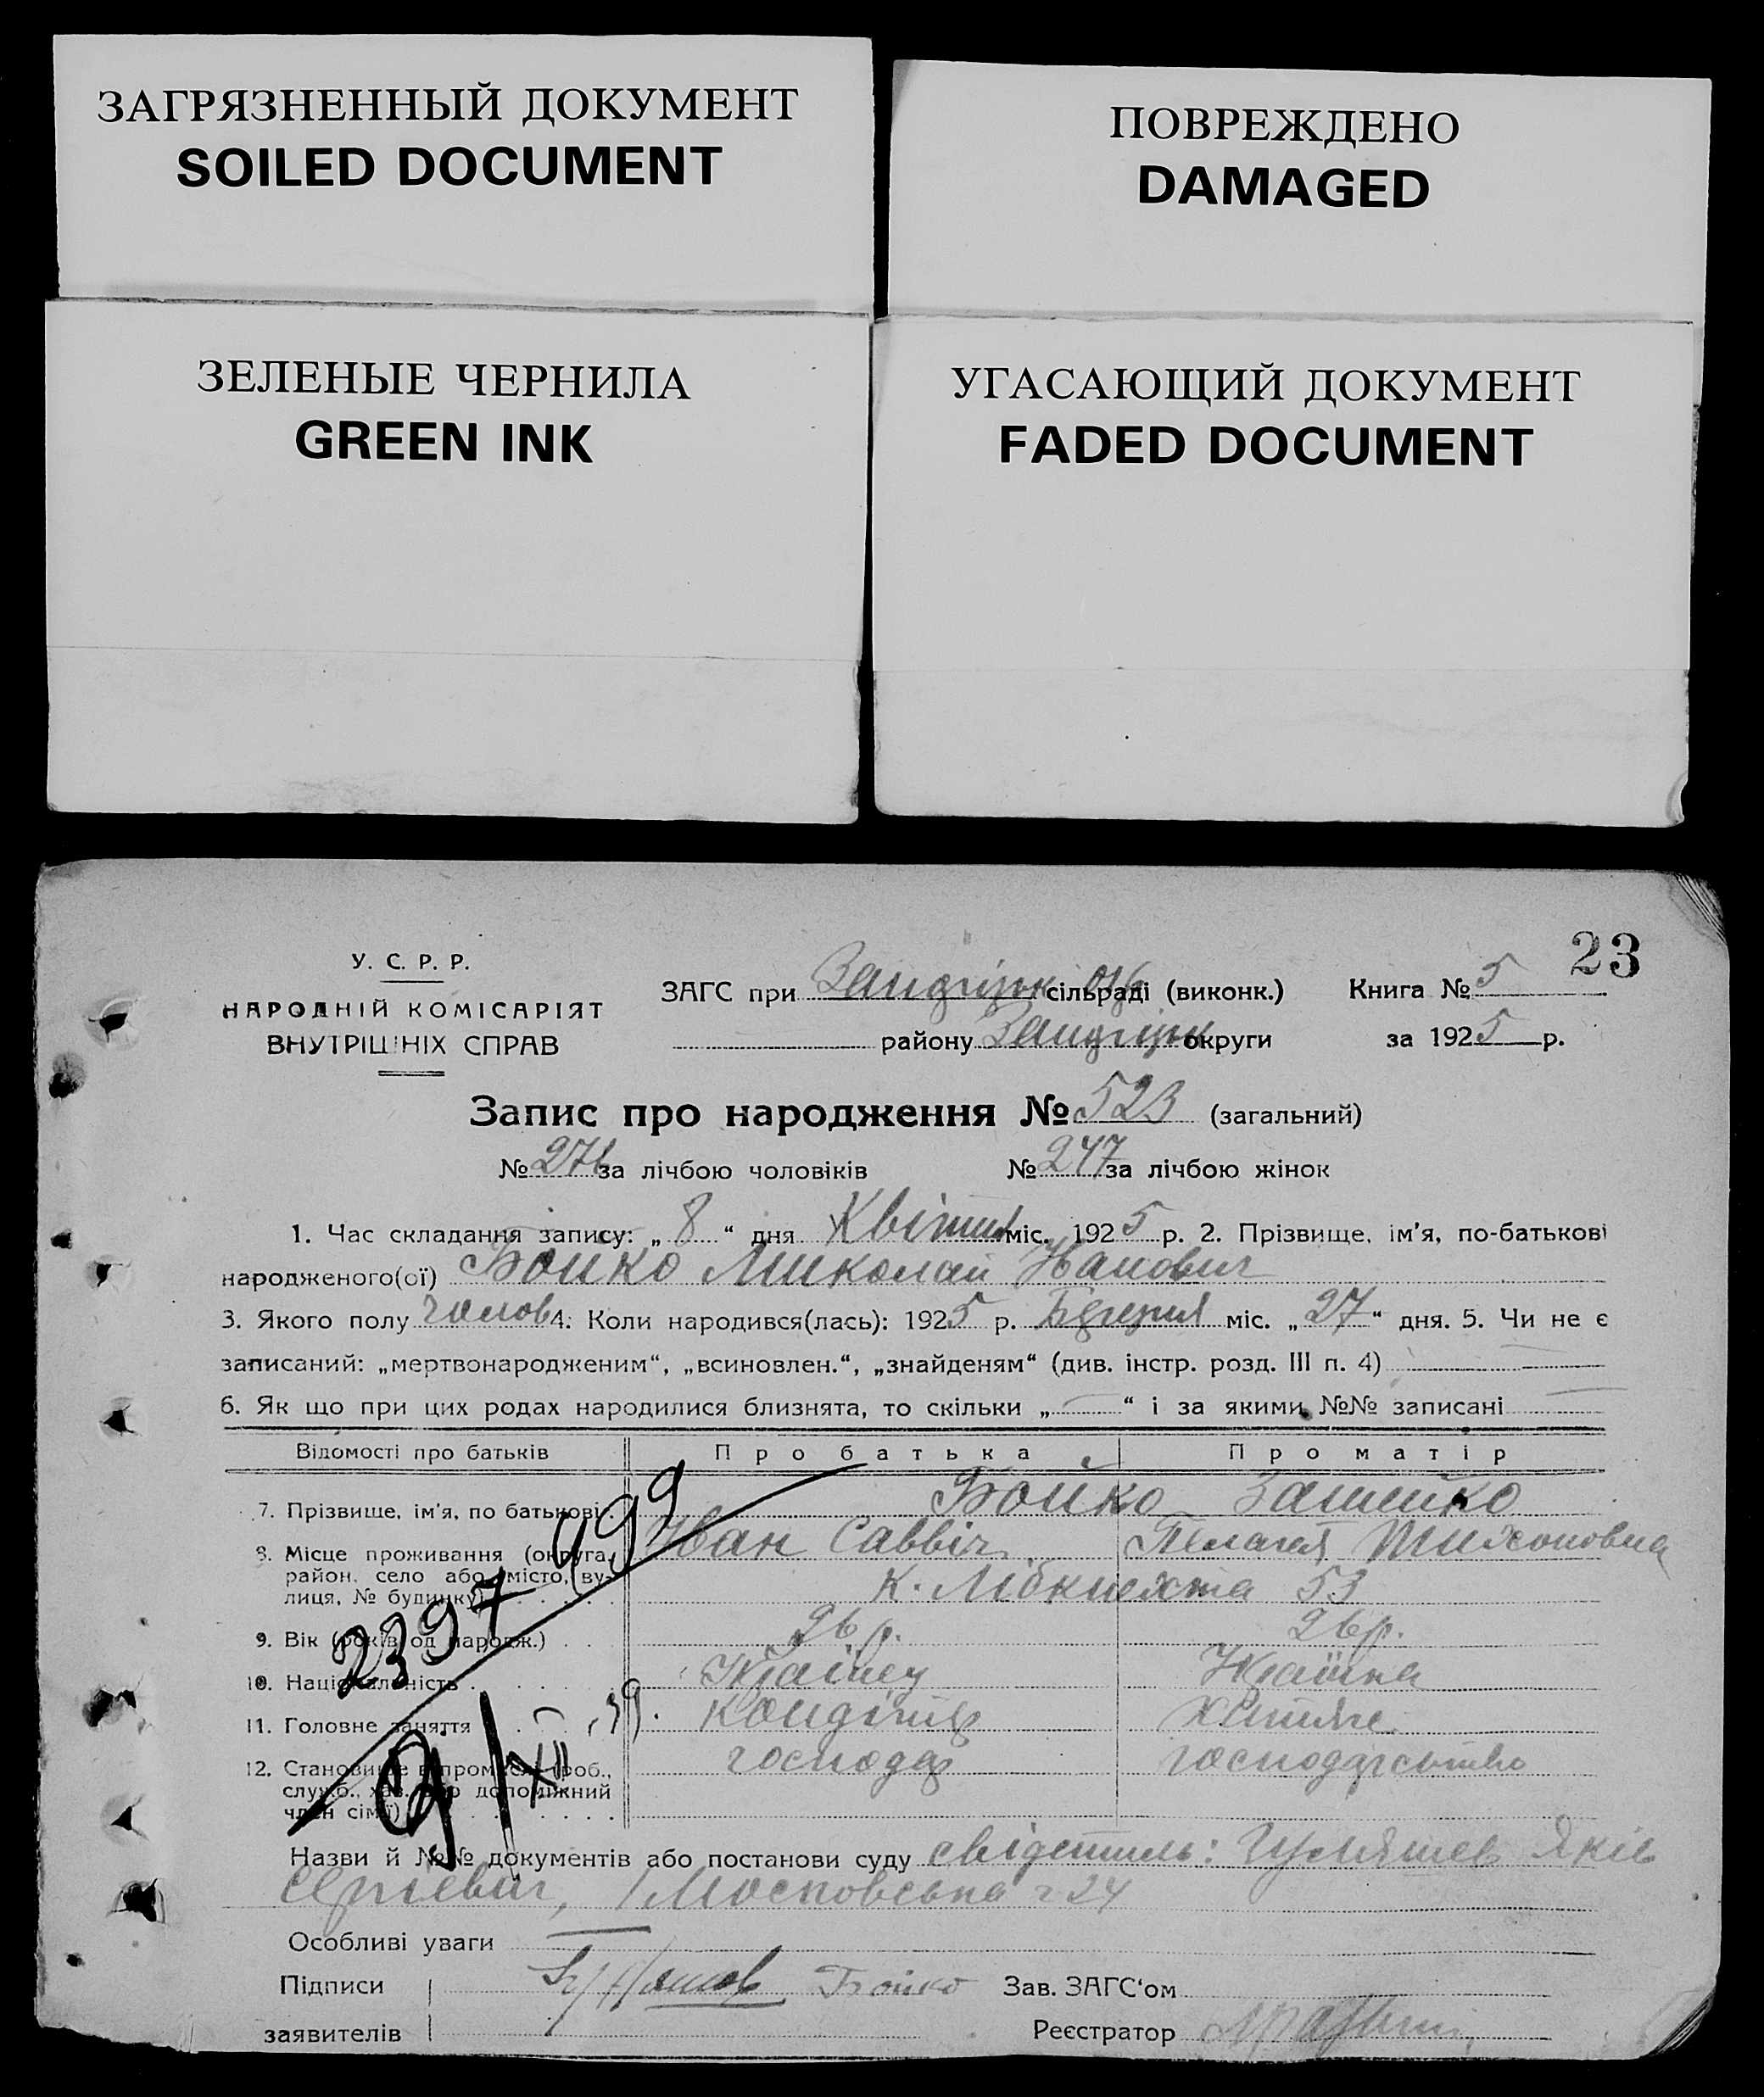 ЗАГРЯЗНЕННЫЙ ДОКУМЕНТ
SOILED DOCUMENT
ПОВРЕЖДЕНО
DAMAGED
ЗЕЛЕНЫЕ ЧЕРНИЛА
GREEN INK
УГАСАЮЩИЙ ДОКУМЕНТ
FADED DOCUMENT
23
У. С. Р. Р.
НАРОДНІЙ КОМІСАРІЯТ
ВНУТРІШНІХ СПРАВ
ЗАГС при сільраді (виконк.) Книга № 5
району округи за 1925 р.
Запис про народження № 523 (загальний)
№ 276 за лічбою чоловіків № 247 за лічбою жінок
1. Час складання запису: „ 8 “ дня Квітня міс. 1925 р. 2. Прізвище, ім'я, по-батькові
народженого(ої) Бойко Миколай Іванович
3. Якого полу чолов 4. Коли народився(лась): 1925 р. міс. „ 27 “ дня. 5. Чи не є
записаний: „мертвонародженим“, „всиновлен.“, „знайденям“ (див. інстр. розд. III п. 4)
6. Як що при цих родах народилися близнята, то скільки „ “ і за якими №№ записані
Відомості про батьків Про батька Про матір
7. Прізвище, ім'я, по батькові Бойко
Іван Саввіч Пелагея Тихоновна
8. Місце проживання (округа, район, село або місто, ву-
лиця, № будинку) К. Лібкнехта 53
9. Вік (років од народж.) 26 р. 26 р.
10. Національність Українка
11. Головне заняття хатнє
12. Становище в промислі (роб., господар господарство
служб., хаз. або допоміжний
член сім'ї)
2397 499
9/XII 39.
Назви й №№ документів або постанови суду свідетиль: Яків
Сергіевич, Московська 24
Особливі уваги
Підписи Бойко Зав. ЗАГС‘ом
заявителів Реєстратор